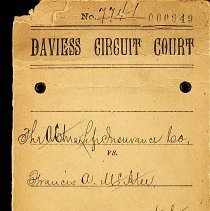 No. 7741 000949
DAVIESS CIRCUIT COURT
The Aetna Life Insurance Co,
vs.
Francis A. McAtee,